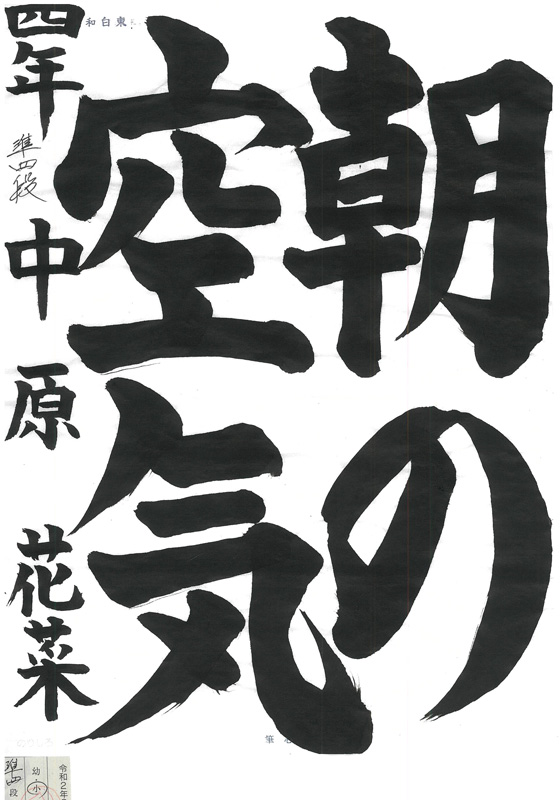 朝の
空気
四年 準四段 中原 花菜
東白和
筆
令和2年
幼・小
準四段